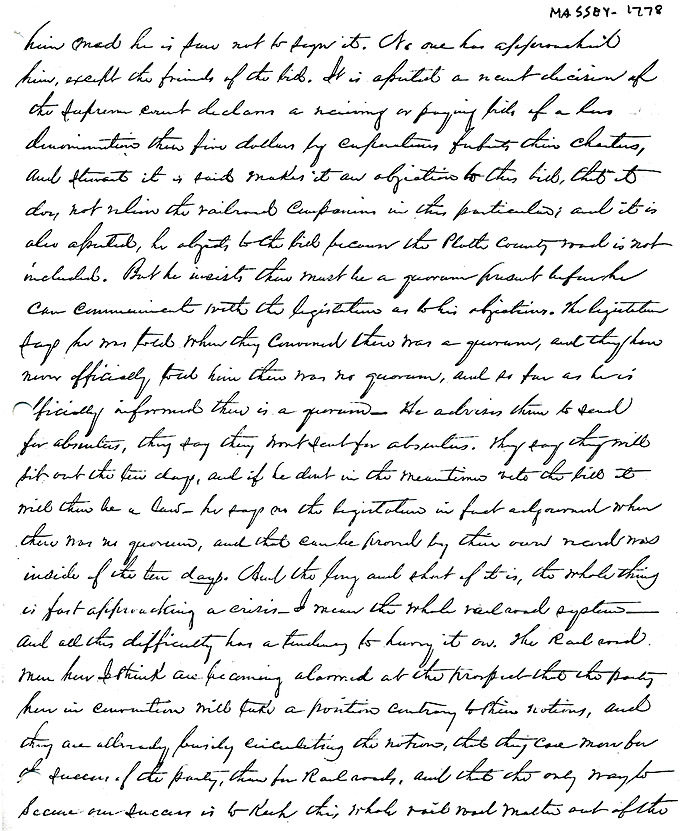 MASSEY - 1778
him mad he is sure not to sign it. No one has approached
him, except the friends of the bill. It is asserted a recent decision of
the Supreme court declares a receiving or paying bills of a less
denomination than five dollars by corporations forfeits their charters,
and Stewart it is said makes it an objection to this bill, that it
does not relieve the railroad companies in this particular; and it is
also asserted, he objects to the bill because the Platte County road is not
included. But he insists there must be a quorum present before he
can communicate with the legislature as to his objections. The legislature
say he was told when they convened there was a quorum, and they have
never officially told him there was no quorum, and so far as he is
officially informed there is a quorum — He advises them to send
for absentees, they say they wont send for absentees. They say they will
sit out the ten days, and if he dont in the meantime veto the bill it
will then be a law — he says no the legislature in fact adjourned when
there was no quorum, and that can be proved by their own record was
inside of the ten days. But the long and short of it is, the whole thing
is fast approaching a crisis — I mean the whole railroad system —
and all this difficulty has a tendency to hurry it on. The Rail road
men here I think are becoming alarmed at the prospect that the party
here in convention will take a position contrary to their notions, and
they are already busily circulating the notion, that they care more for
success of the party, than for Rail roads, and that the only way to
secure our success is to keep this whole rail road matter out of the